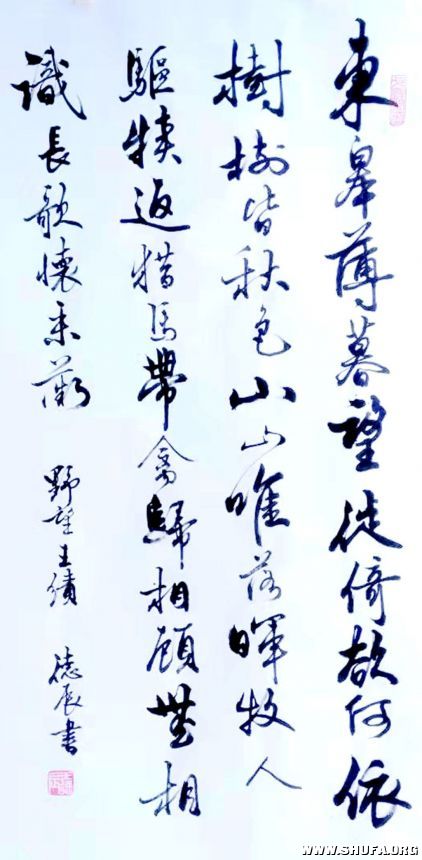 東皋薄暮望徙倚欲何依
樹樹皆秋色山山唯落暉牧人
驅犢返猎馬帶禽歸相顧無相
識長歌懷采薇
野望王績 德辰書
WWW.SHUFA.ORG